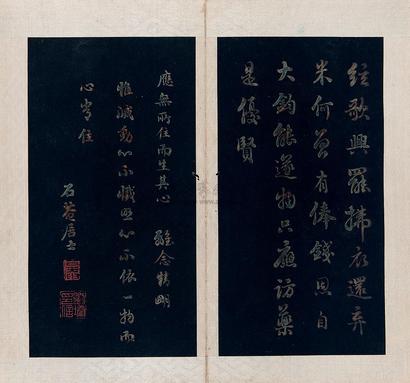 弦歌興罷拂衣還弃
米何曾有俸錢恩自
大鈞能遂物只應訪藥
是優賢
應無所住而生其心　雖念精明
惟滅動心不滅照心不依一物而
心常住
石菴居士